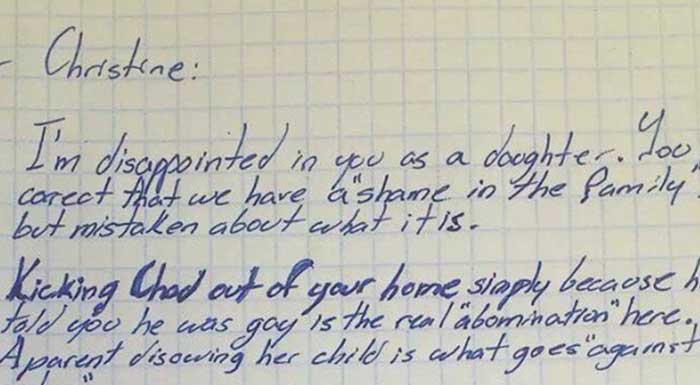 - Christine:
I'm disappointed in you as a daughter. You
corect that we have a "shame in the family"
but mistaken about what it is.
Kicking Chad out of your home simply because h
told you he was gay is the real "abomination" here.
A parent disowing her child is what goes "against